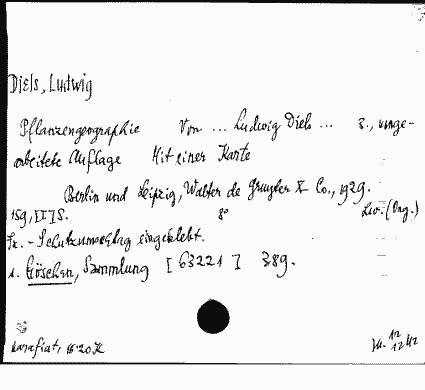 Diels, Ludwig
Pflanzengeographie Von ... Ludwig Diels ... 3., umge-
arbeitete Auflage Mit einer Karte
Berlin und Leipzig, Walter de Gruyter & Co., 1929.
159, [I] S. 8°
- Schutzumschlag eingeklebt.
s. Göschen, Sammlung [63221] 389.